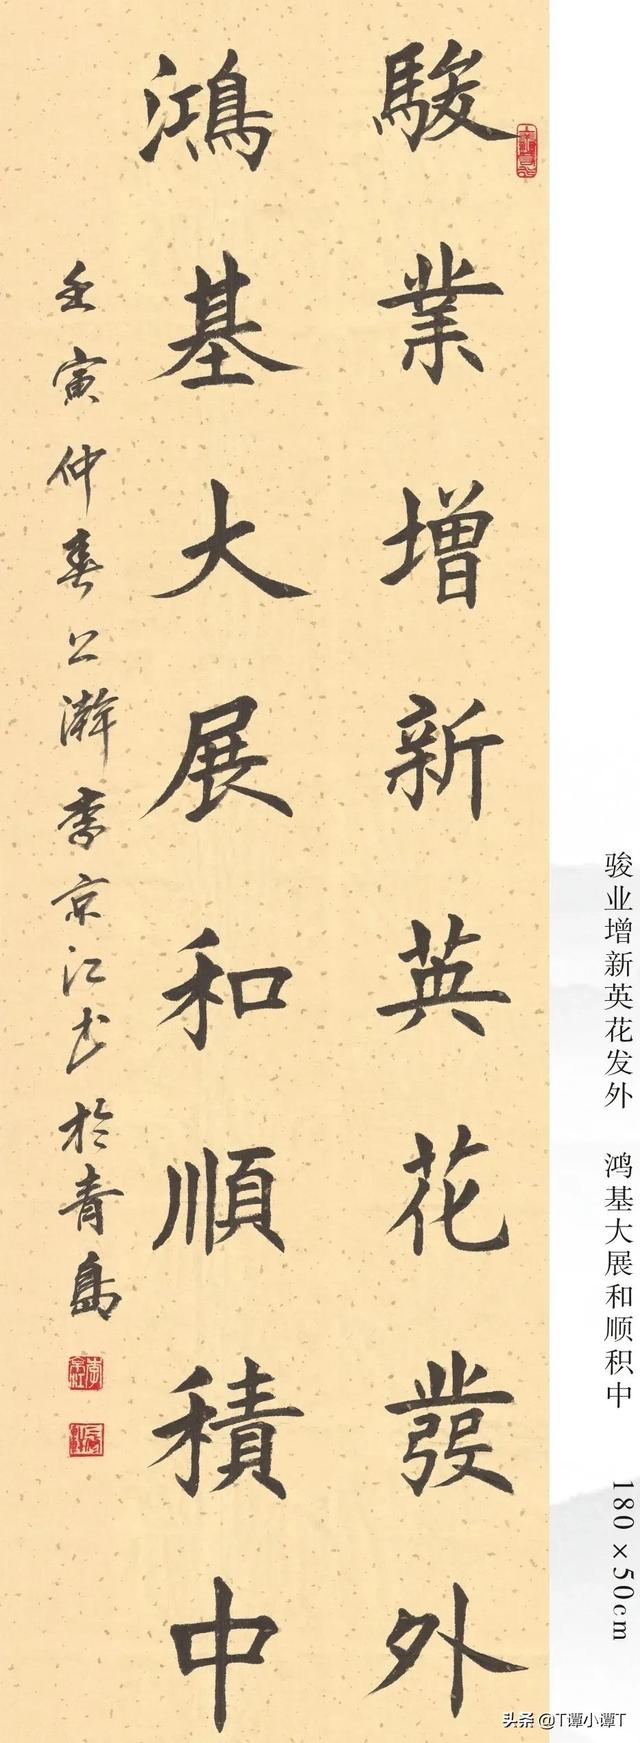 駿業增新英花發外
鴻基大展和順積中
壬寅仲春上澣李京江书於青島
李京江
骏业增新英花发外 鸿基大展和顺积中
180×50cm
头条 @T谭小谭T